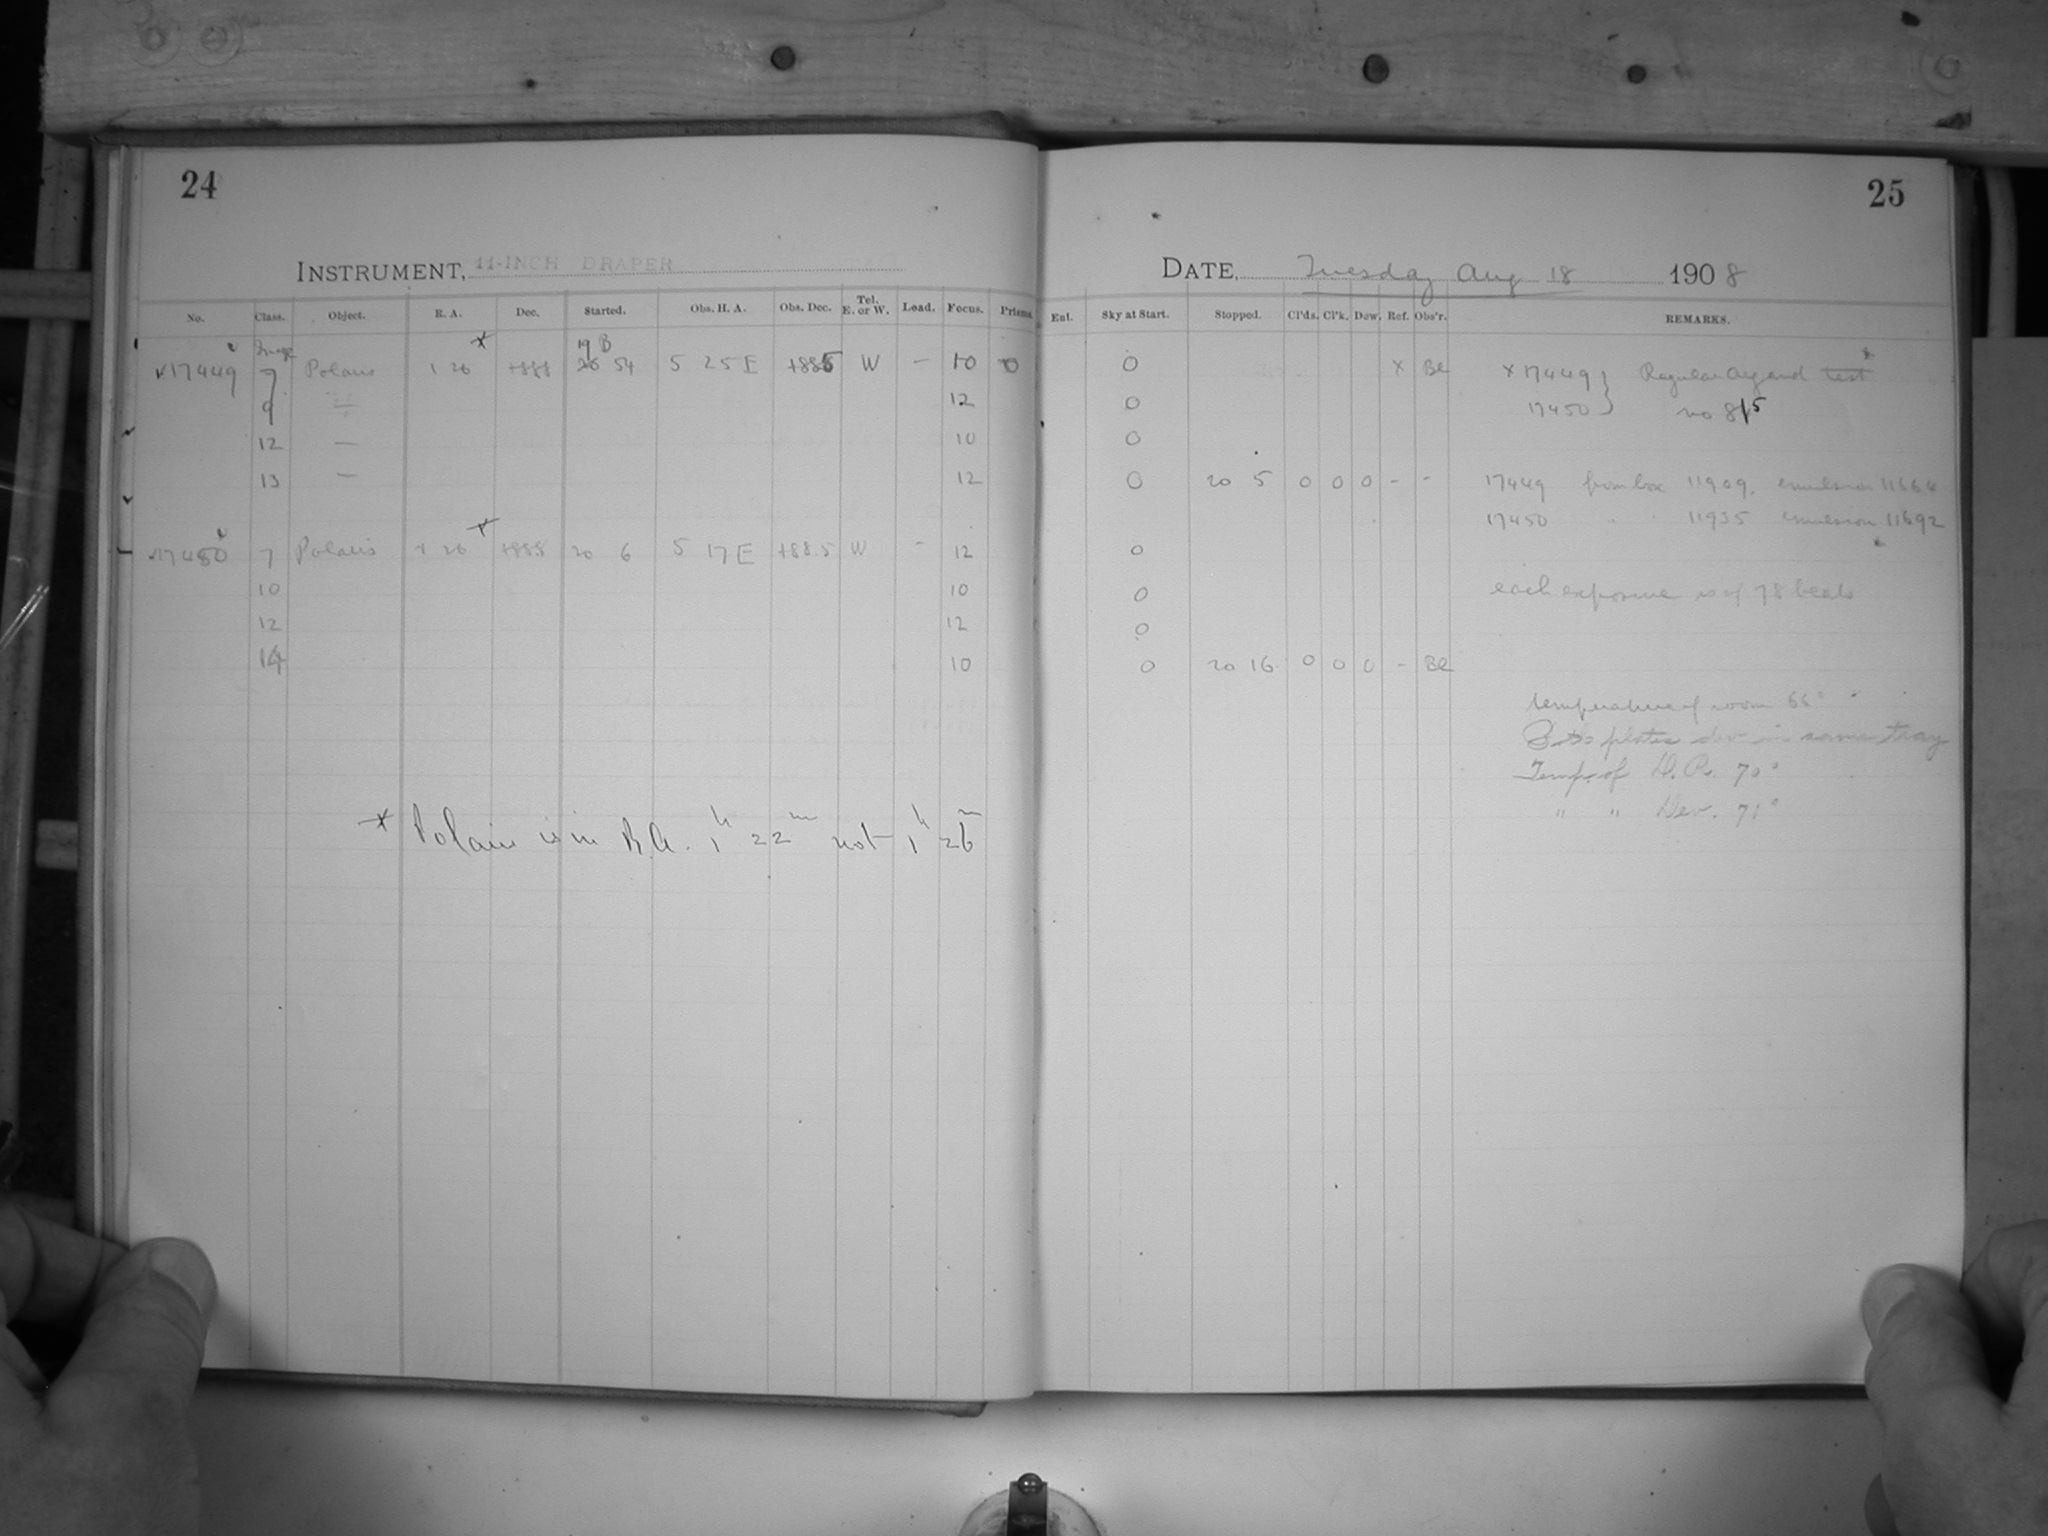 24
25
INSTRUMENT, 11-INCH DRAPER
DATE, Tuesday Aug 18 1908
No. Class. Object. R. A. Dec. Started. Obs. H. A. Obs. Dec. Tel. E. or W. Load. Focus. Prisms. Ent. Sky at Start. Stopped. Cl'ds. Cl'k. Dew. Ref. Obs'r. REMARKS.
Image 19 B
17449 7 Polaris 1 26 +88.8 54 5 25 E +88.5 W – 10 0 0 × Be × 17449 } Regular Argand test
9 – 12 0 17450 } no 815
12 – 10 0
13 – 12 0 20 5 0 0 0 - - 17449 from box 11909, emulsion 11664
17450 " " 11935 emulsion 11692
17450 7 Polaris 1 26 +88.8 20 6 5 17 E +88.5 W - 12 0
10 10 0 each exposure is of 78 beats
12 12 0
14 10 0 20 16 0 0 0 - Be
temperature of room 66°
Both plates dev in same tray
Temp. of D. R. 70°
" " Dev. 71°
* Polaris is in R.A. 1h 22m not 1h 26m